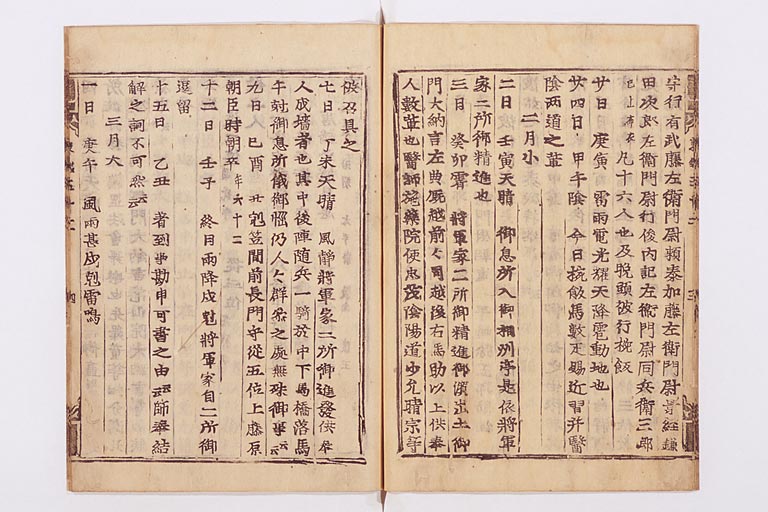 守行有武藤左衛門尉頼泰加藤左衛門尉景經鎌
田次郎左衛門尉行俊内記左衛門尉同兵衛三郎
已上 凡十六人也及晩頭被行椀飯
廿日 庚寅 雷雨電光耀天降雹動地也
廿四日 甲午陰 今日椀飯馬數疋賜近習并醫
陰兩道之輩
二月小
二日 壬寅天晴 御息所入御相州亭是依將軍
家二所御精進也
三日 癸卯霽 將軍家二所御精進御濱出土御
門大納言左典厩越前々司越後右馬助以上供奉
人數輩也醫師施藥院使忠茂陰陽道少允晴宗等
被召具之
七日 丁未天晴 風静將軍家二所御進發供奉
人成墻者也其中後陣随兵一騎於中下馬橋落馬
午尅御息所俄御惱仍人々群參之處無殊御事云云
九日 己酉 丑尅笠間前長門守從五位上藤原
朝臣時朝卒 年六十二
十二日 壬子 終日雨降戌尅將軍家自二所御
還留
十五日 乙丑 着到 勘申可書之由云云師 結
解之詞不可然云云
三月大
一日 庚午天 風雨甚戌尅雷鳴